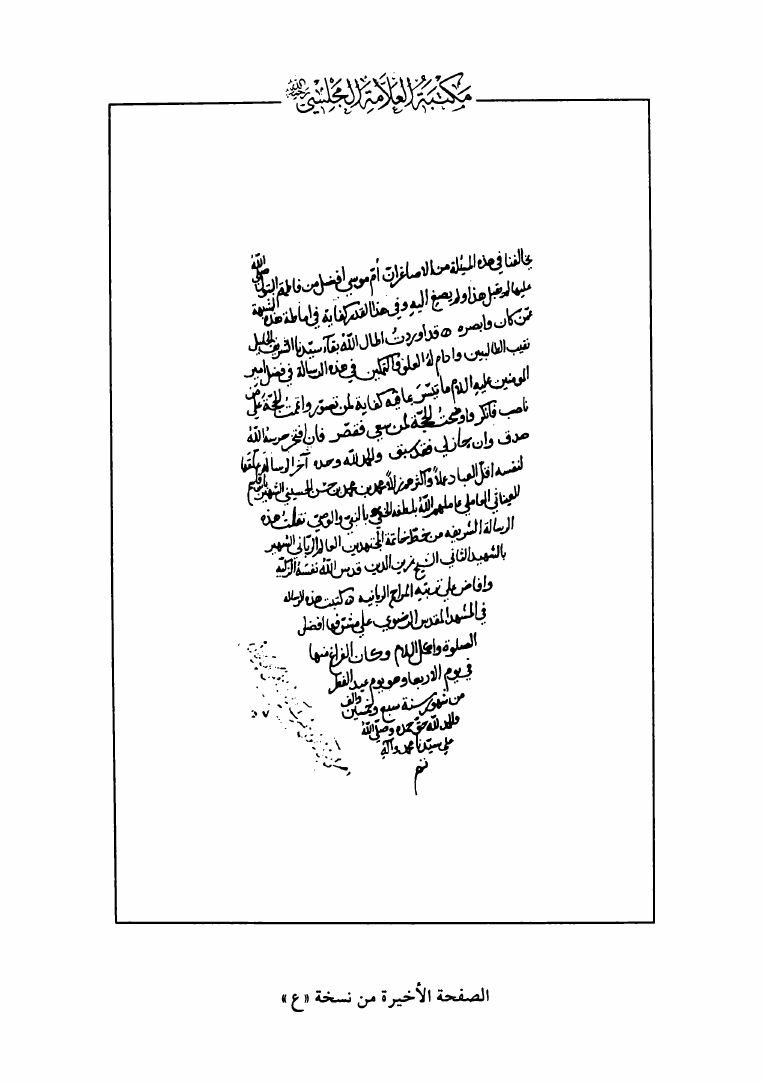 مكتبة العلامة المجلسي رحمه الله
يخالفنا في هذه المسئلة من الاصاغر انّ أمّ موسى افضل من فاطمة البتول صلى الله
عليها لم يقبل هذا ولم يصغ اليه وفي هذا القدر كفاية في اماطة هذه الشبهة
عمّن كان وابصره قد اوردتُ اطال اللّٰه بقاء سيّدنا الشريف الجليل
نقيب الطالبيين وادام له العلو والتمكين في هذه الرسالة في فضل امير
المومنين عليه السلام ما تيسّر مما فيه كفاية لمن تصوّر واتممت الحجّة على من
ناصب فانكر واوضحتُ الحجّة لمن سعى فقصّر فان افتخر حرسه اللّٰه
صدق وان جازلي فقد سبق والحمد للّٰه وحده آخر الرسالة علّقها
لنفسه اقلّ العباد عملاً واكثرهم زللاً محمد بن محمد بن حسن الحسيني الشهير بابن قاسم
العيناثي العاملي عاملهم اللّٰه بلطفه الخفي بالنبي والوصي نقلت هذه
الرسالة الشريفه من خطّ خاتمة المجتهدين العالم الرباني الشهير
بالشهيد الثاني الشيخ زين الدين قدس اللّٰه نفسه الزكية
وافاض على تربته المراحم الربانيه كتبت هذه الرساله
في المشهد المقدس الرضوي على مشرّفها افضل
الصلوة واكمل السلام وكان الفراغ منها
في يوم الاربعا وهو يوم عيد الفطر
من شهور سنة سبع وخمسين والف
والحمد للّٰه حقّ حمده وصلّى اللّٰه
على سيّدنا محمد وآله
تم
الصفحة الأخيرة من نسخة «ع»